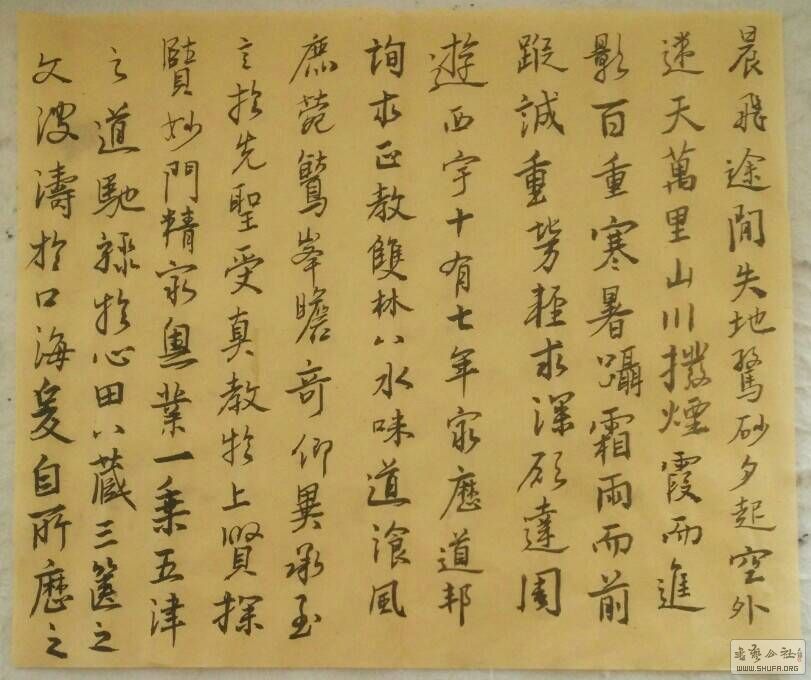 晨飛途間失地驚砂夕起空外
迷天萬里山川撥煙霞而進
影百重寒暑躡霜雨而前
蹤誠重勞輕求深願達周
遊西宇十有七年窮歷道邦
詢求正教雙林八水味道湌風
鹿菀鷲峯瞻奇仰異承至
言於先聖受真教於上賢探
賾妙門精窮奧業一乘五津
之道馳驟於心田八藏三篋之
文波濤於口海爰自所歷之
书法公社
WWW.SHUFA.ORG